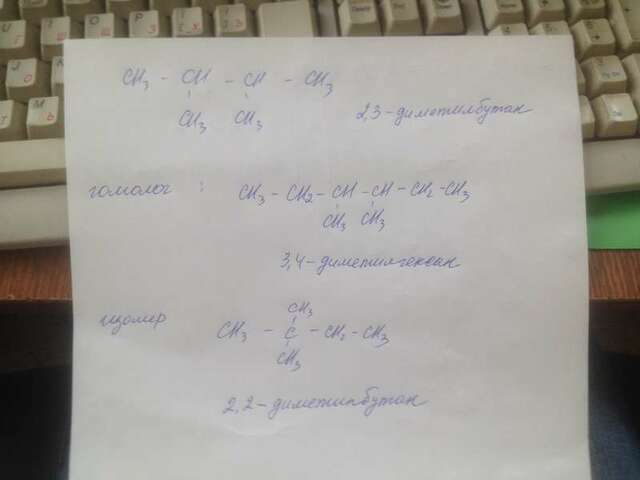 CH3 - CH - CH - CH3
CH3 CH3
2,3-диметилбутан
гомолог : CH3 - CH2 - CH - CH - CH2 - CH3
CH3 CH3
3,4-диметилгексан
CH3
изомер CH3 - C - CH2 - CH3
CH3
2,2-диметилбутан